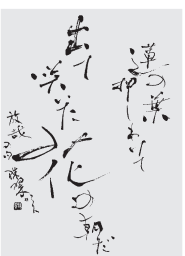 蓮の葉
押しわけて
出て
咲いた
花の朝だ
放哉